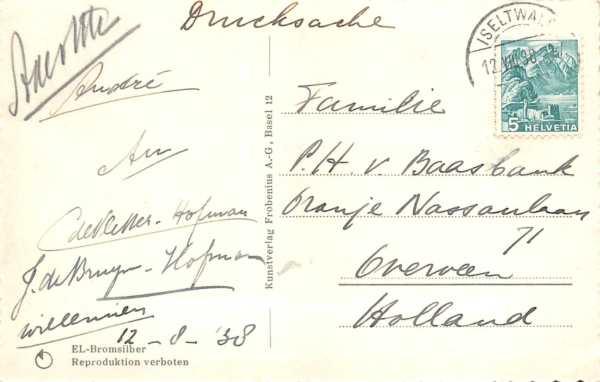 Drucksache
Annette
André
An
C de Vletter-Hofman
J. de Bruyn-Hofman
Willemien
12-8-'38
EL-Bromsilber
Reproduktion verboten
Kunstverlag Frobenius A.-G., Basel 12
ISELTWALD
12.VIII.38
5 HELVETIA
Familie
P. H. v. Baasbank
Oranje Nassaulaan
71
Overveen
Holland